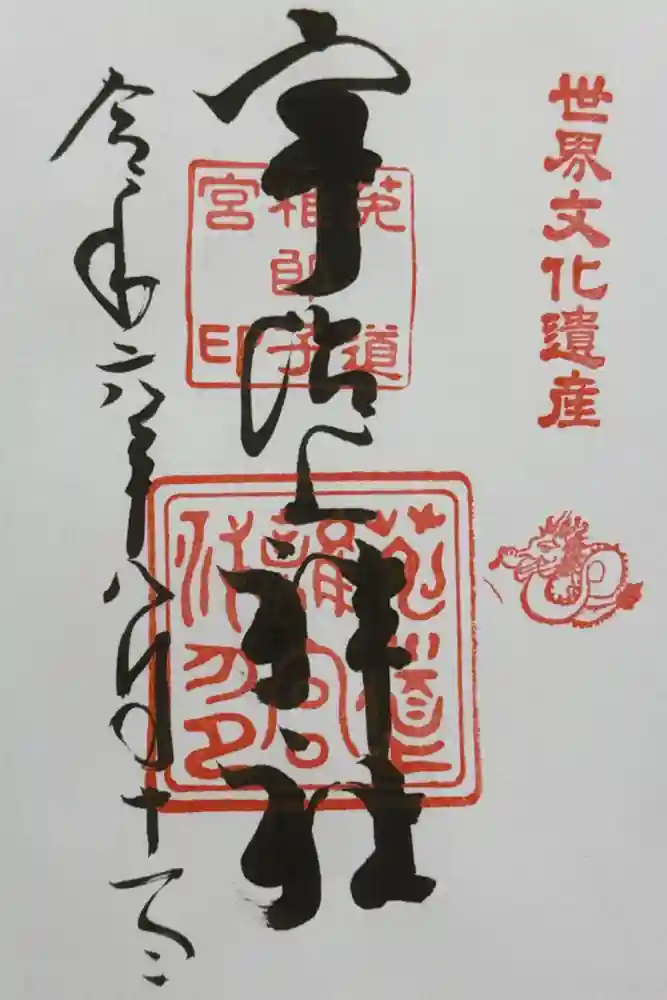 世界文化遺産
宇治上神社
菟道
稚郎子
宮印
令和六年八月十